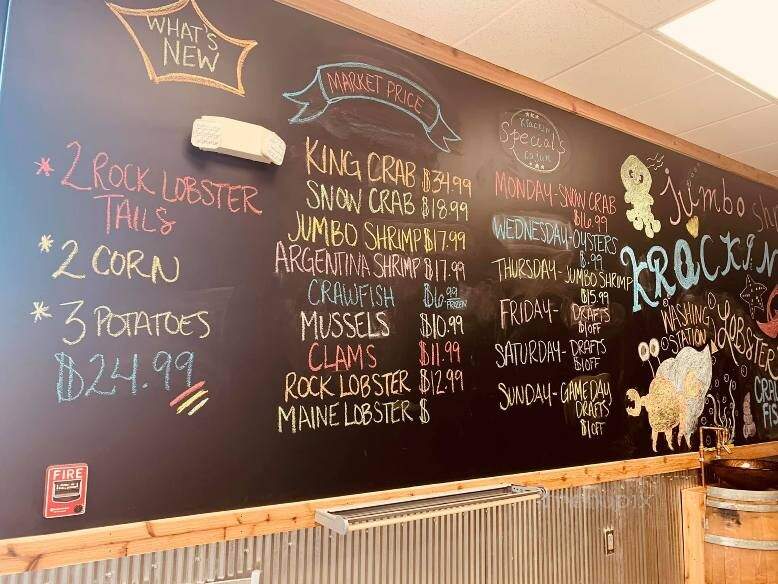 WHAT'S
NEW
* 2 ROCK LOBSTER
TAILS
* 2 CORN
* 3 POTATOES
$24.99
FIRE
MARKET PRICE
KING CRAB $34.99
SNOW CRAB $18.99
JUMBO SHRIMP $17.99
ARGENTINA SHRIMP $17.99
CRAWFISH $6.99
FROZEN
MUSSELS $10.99
CLAMS $11.99
ROCK LOBSTER $12.99
MAINE LOBSTER $
KRACKIN
Specials
CAJUN
MONDAY-SNOW CRAB
$16.99
WEDNESDAY-OYSTERS
$.99
THURSDAY-JUMBO SHRIMP
$15.99
FRIDAY- DRAFTS
$1 OFF
SATURDAY- DRAFTS
$1 OFF
SUNDAY- GAMEDAY
DRAFTS
$1 OFF
Jumbo Sh
KRACKIN
WASHING
STATION
LOBSTER
CRA
FIS